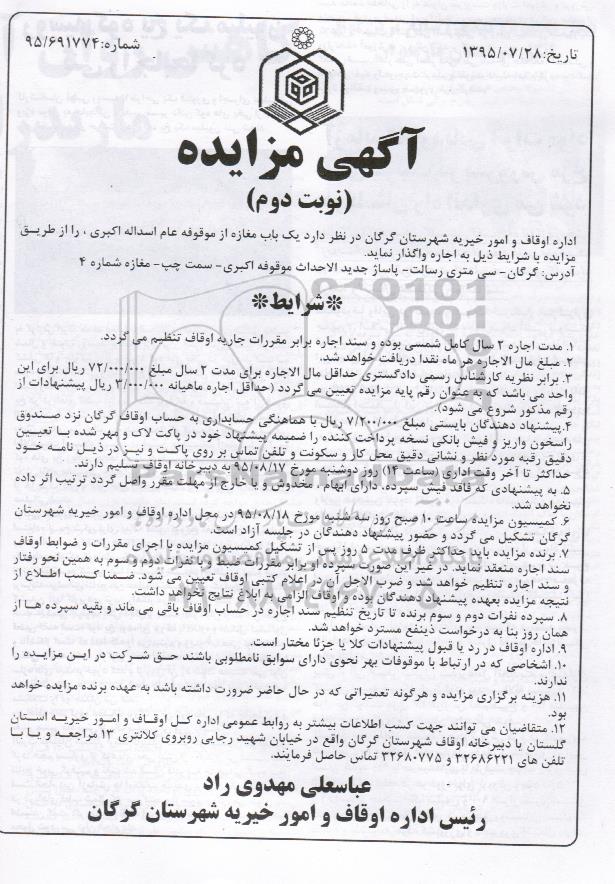 تاریخ: ۱۳۹۵/۰۷/۲۸
شماره: ۹۵/۶۹۱۷۷۴
آگهی مزایده
(نوبت دوم)
اداره اوقاف و امور خیریه شهرستان گرگان در نظر دارد یک باب مغازه از موقوفه عام اسداله اکبری ، را از طریق
مزایده با شرایط ذیل به اجاره واگذار نماید.
آدرس: گرگان- سی متری رسالت- پاساژ جدید الاحداث موقوفه اکبری- سمت چپ- مغازه شماره ۴
*شرایط*
۱. مدت اجاره ۲ سال کامل شمسی بوده و سند اجاره برابر مقررات جاریه اوقاف تنظیم می گردد.
۲. مبلغ مال الاجاره هر ماه نقدا دریافت خواهد شد.
۳. برابر نظریه کارشناس رسمی دادگستری حداقل مال الاجاره برای مدت ۲ سال مبلغ ۷۲/۰۰۰/۰۰۰ ریال برای این
واحد می باشد که به عنوان رقم پایه مزایده تعیین می گردد (حداقل اجاره ماهیانه ۳/۰۰۰/۰۰۰ ریال پیشنهادات از
رقم مذکور شروع می شود).
۴.پیشنهاد دهندگان بایستی مبلغ ۷/۲۰۰/۰۰۰ ریال با هماهنگی حسابداری به حساب اوقاف گرگان نزد صندوق
راسخون واریز و فیش بانکی نسخه پرداخت کننده را ضمیمه پیشنهاد خود در پاکت لاک و مهر شده با تعیین
دقیق رقبه مورد نظر و نشانی دقیق محل کار و سکونت و تلفن تماس بر روی پاکت و نیز در ذیل نامه خود
حداکثر تا آخر وقت اداری (ساعت ۱۴) روز دوشنبه مورخ ۹۵/۰۸/۱۷ به دبیرخانه اوقاف تسلیم دارند.
۵. به پیشنهادی که فاقد فیش سپرده، دارای ابهام، مخدوش و یا خارج از مهلت مقرر واصل گردد ترتیب اثر داده
نخواهد شد.
۶. کمیسیون مزایده ساعت ۱۰ صبح روز سه شنبه مورخ ۹۵/۰۸/۱۸ در محل اداره اوقاف و امور خیریه شهرستان
گرگان تشکیل می گردد و حضور پیشنهاد دهندگان در جلسه آزاد است.
۷. برنده مزایده باید حداکثر ظرف مدت ۵ روز پس از تشکیل کمیسیون مزایده با اجرای مقررات و ضوابط اوقاف
سند اجاره منعقد نماید. در غیر این صورت سپرده او برابر مقررات ضبط و با نفرات دوم و سوم به همین نحو رفتار
و سند اجاره تنظیم خواهد شد و ضرب الاجل آن در اعلام کتبی اوقاف تعیین می شود. ضمنا کسب اطلاع از
نتیجه مزایده بعهده پیشنهاد دهندگان بوده و اوقاف الزامی به ابلاغ نتایج نخواهد داشت.
۸. سپرده نفرات دوم و سوم برنده تا تاریخ تنظیم سند اجاره در حساب اوقاف باقی می ماند و بقیه سپرده ها از
همان روز بنا به درخواست ذینفع مسترد خواهد شد.
۹. اداره اوقاف در رد یا قبول پیشنهادات کلا یا جزئا مختار است.
۱۰. اشخاصی که در ارتباط با موقوفات بهر نحوی دارای سوابق نامطلوبی باشند حق شرکت در این مزایده را
ندارند.
۱۱. هزینه برگزاری مزایده و هرگونه تعمیراتی که در حال حاضر ضرورت داشته باشد به عهده برنده مزایده خواهد
بود.
۱۲. متقاضیان می توانند جهت کسب اطلاعات بیشتر به روابط عمومی اداره کل اوقاف و امور خیریه استان
گلستان یا دبیرخانه اوقاف شهرستان گرگان واقع در خیابان شهید رجایی روبروی کلانتری ۱۳ مراجعه و یا با
تلفن های ۳۲۶۸۶۲۲۱ و ۳۲۶۸۰۷۷۵ تماس حاصل فرمایند.
عباسعلی مهدوی راد
رئیس اداره اوقاف و امور خیریه شهرستان گرگان